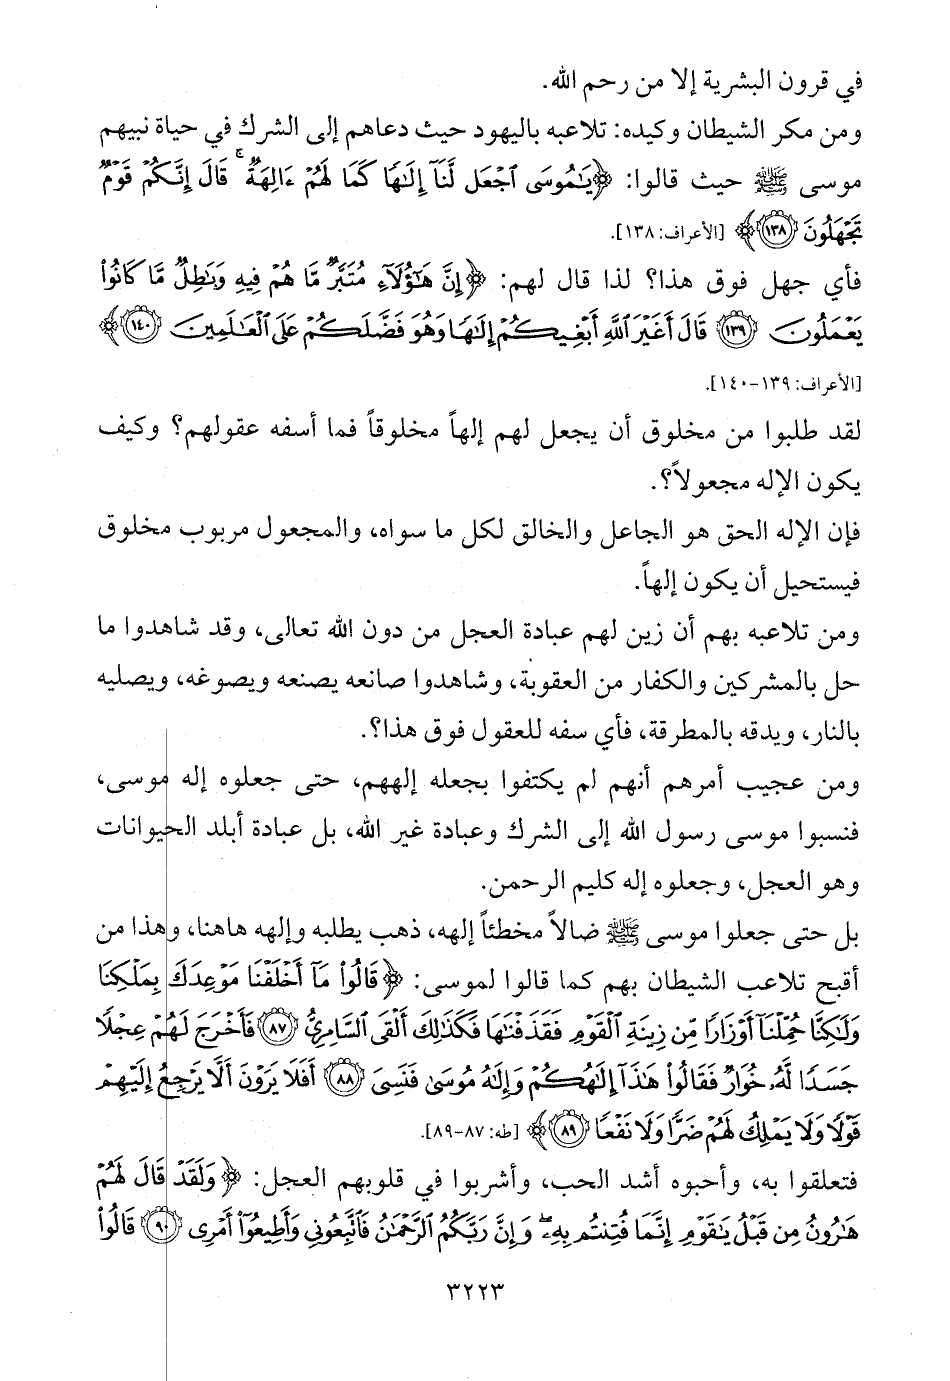 في قرون البشرية إلا من رحم الله.
ومن مكر الشيطان وكيده: تلاعبه باليهود حيث دعاهم إلى الشرك في حياة نبيهم
موسى ﷺ حيث قالوا: ﴿يَٰمُوسَى ٱجْعَل لَّنَآ إِلَٰهًا كَمَا لَهُمْ ءَالِهَةٌ ۚ قَالَ إِنَّكُمْ قَوْمٌ
تَجْهَلُونَ ١٣٨﴾ [الأعراف: ١٣٨].
فأي جهل فوق هذا؟ لذا قال لهم: ﴿إِنَّ هَٰٓؤُلَآءِ مُتَبَّرٌ مَّا هُمْ فِيهِ وَبَٰطِلٌ مَّا كَانُوا۟
يَعْمَلُونَ ١٣٩ قَالَ أَغَيْرَ ٱللَّهِ أَبْغِيكُمْ إِلَٰهًا وَهُوَ فَضَّلَكُمْ عَلَى ٱلْعَٰلَمِينَ ١٤٠﴾
[الأعراف: ١٣٩-١٤٠].
لقد طلبوا من مخلوق أن يجعل لهم إلهاً مخلوقاً فما أسفه عقولهم؟ وكيف
يكون الإله مجعولاً؟.
فإن الإله الحق هو الجاعل والخالق لكل ما سواه، والمجعول مربوب مخلوق
فيستحيل أن يكون إلهاً.
ومن تلاعبه بهم أن زين لهم عبادة العجل من دون الله تعالى، وقد شاهدوا ما
حل بالمشركين والكفار من العقوبة، وشاهدوا صانعه يصنعه ويصوغه، ويصليه
بالنار، ويدقه بالمطرقة، فأي سفه للعقول فوق هذا؟.
ومن عجيب أمرهم أنهم لم يكتفوا بجعله إلههم، حتى جعلوه إله موسى،
فنسبوا موسى رسول الله إلى الشرك وعبادة غير الله، بل عبادة أبلد الحيوانات
وهو العجل، وجعلوه إله كليم الرحمن.
بل حتى جعلوا موسى ﷺ ضالاً مخطئاً إلهه، ذهب يطلبه وإلهه هاهنا، وهذا من
أقبح تلاعب الشيطان بهم كما قالوا لموسى: ﴿قَالُوا۟ مَآ أَخْلَفْنَا مَوْعِدَكَ بِمَلْكِنَا
وَلَٰكِنَّا حُمِّلْنَآ أَوْزَارًا مِّن زِينَةِ ٱلْقَوْمِ فَقَذَفْنَٰهَا فَكَذَٰلِكَ أَلْقَى ٱلسَّامِرِىُّ ٨٧ فَأَخْرَجَ لَهُمْ عِجْلًا
جَسَدًا لَّهُۥ خُوَارٌ فَقَالُوا۟ هَٰذَآ إِلَٰهُكُمْ وَإِلَٰهُ مُوسَىٰ فَنَسِىَ ٨٨ أَفَلَا يَرَوْنَ أَلَّا يَرْجِعُ إِلَيْهِمْ
قَوْلًا وَلَا يَمْلِكُ لَهُمْ ضَرًّا وَلَا نَفْعًا ٨٩﴾ [طه: ٨٧-٨٩].
فتعلقوا به، وأحبوه أشد الحب، وأشربوا في قلوبهم العجل: ﴿وَلَقَدْ قَالَ لَهُمْ
هَٰرُونُ مِن قَبْلُ يَٰقَوْمِ إِنَّمَا فُتِنتُم بِهِۦ ۖ وَإِنَّ رَبَّكُمُ ٱلرَّحْمَٰنُ فَٱتَّبِعُونِى وَأَطِيعُوٓا۟ أَمْرِى ٩٠ قَالُوا۟
٣٢٢٣